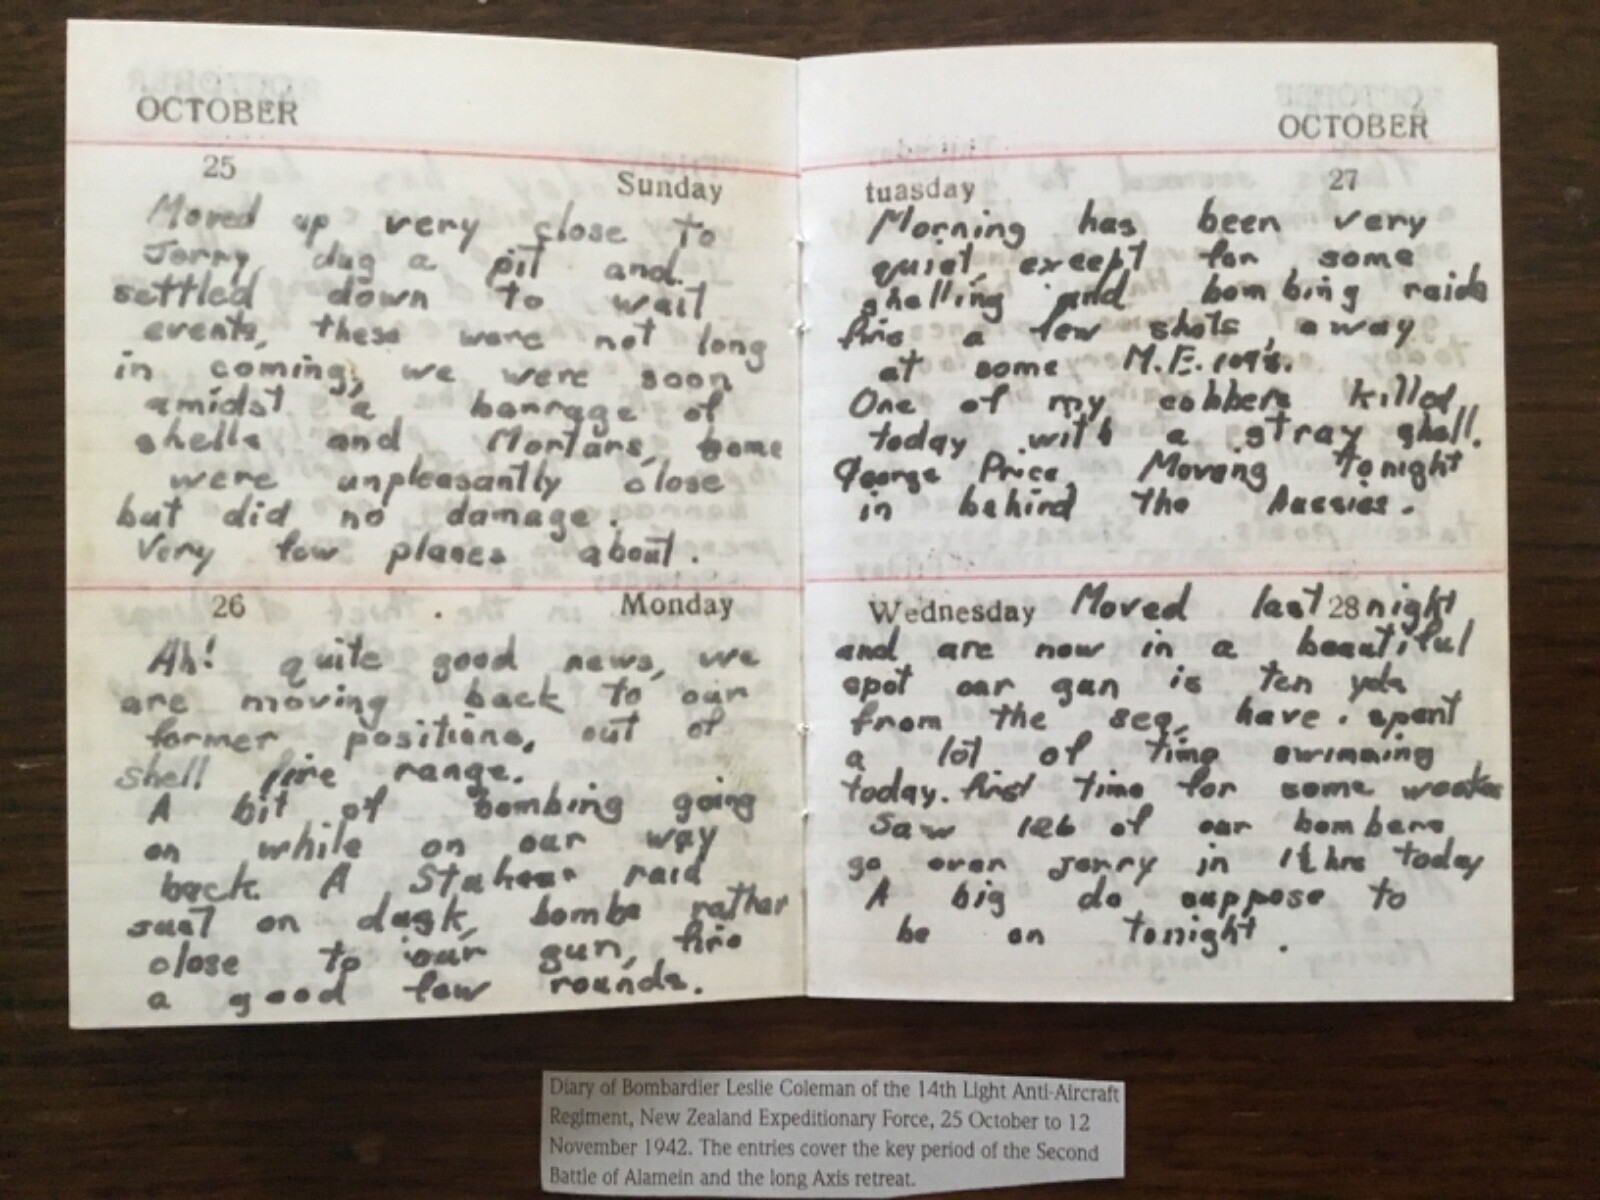 OCTOBER
25
Sunday
Moved up very close to
Jerry, dug a pit and
settled down to wait
events, these were not long
in coming, we were soon
amidst a barrage of
shells and Mortars, some
were unpleasantly close
but did no damage.
Very few planes about.
26
Monday
Ah! quite good news, we
are moving back to our
former positions, out of
shell fire range.
A bit of bombing going
on while on our way
back. A Stukas raid
just on dusk, bombs rather
close to our gun, fire
a good few rounds.
OCTOBER
tuasday
27
Morning has been very
quiet, except for some
shelling and bombing raids
fire a few shots away
at some M.E. 109's.
One of my cobbers killed
today with a stray shell.
George Price. Moving tonight
in behind the Aussies.
Wednesday Moved last 28 night
and are now in a beautiful
spot our gun is ten yds
from the sea, have spent
a lot of time swimming
today. first time for some weeks
Saw 126 of our bombers
go over Jerry in 1½ hrs today
A big do suppose to
be on tonight.
Diary of Bombardier Leslie Coleman of the 14th Light Anti-Aircraft
Regiment, New Zealand Expeditionary Force, 25 October to 12
November 1942. The entries cover the key period of the Second
Battle of Alamein and the long Axis retreat.